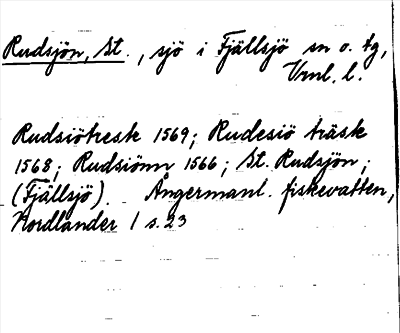 Rudsjön, St., sjö i Fjällsjö sn o. tg,
Vrnl. l.
Rudsiötresk 1569; Rudesiö träsk
1568; Rudsiönn 1566; St. Rudsjön;
(Fjällsjö). Ångermanl. fiskevatten,
Nordlander 1 s. 23